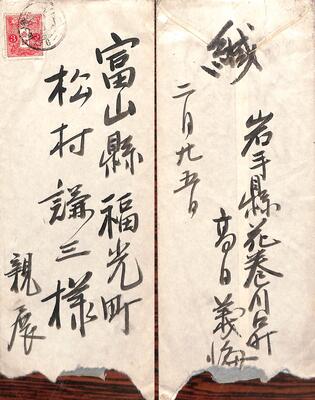 富山縣福光町
松村謙三様
親展
緘
二月廿五日
岩手縣花巻川口町
高日義海